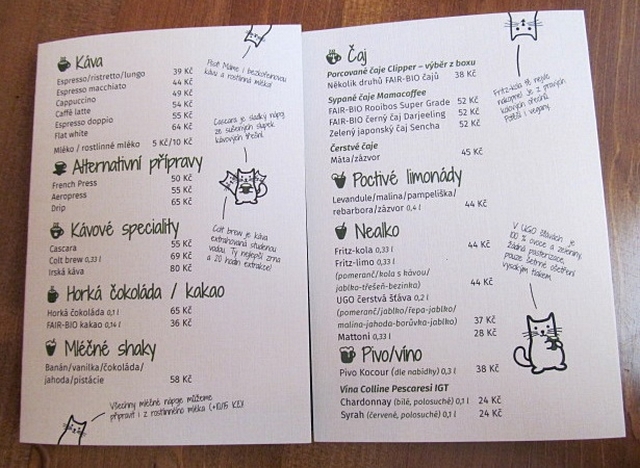 Káva
Espresso/ristretto/lungo 39 Kč
Espresso macchiato 44 Kč
Cappuccino 49 Kč
Caffè latte 54 Kč
Espresso doppio 55 Kč
Flat white 64 Kč
Mléko / rostlinné mléko 5 Kč/10 Kč
Psst! Máme i bezkofeinovou
kávu a rostlinná mléka!
Alternativní přípravy
French Press 50 Kč
Aeropress 55 Kč
Drip 65 Kč
Cascara je sladký nápoj
ze sušených slupek
kávových třešní.
Kávové speciality
Cascara 55 Kč
Colt brew 0,33 l 69 Kč
Irská káva 80 Kč
Colt brew je káva
extrahovaná studenou
vodou. Ty nejlepší zrna
a 20 hodin extrakce!
Horká čokoláda / kakao
Horká čokoláda 0,1 l 65 Kč
FAIR-BIO kakao 0,14 l 36 Kč
Mléčné shaky
Banán/vanilka/čokoláda/
jahoda/pistácie 58 Kč
Všechny mléčné nápoje můžeme
připravit i z rostlinného mléka (+10/15 Kč)!
Čaj
Porcované čaje Clipper – výběr z boxu
Několik druhů FAIR-BIO čajů 38 Kč
Sypané čaje Mamacoffee
FAIR-BIO Rooibos Super Grade 52 Kč
FAIR-BIO černý čaj Darjeeling 52 Kč
Zelený japonský čaj Sencha 52 Kč
Čerstvé čaje
Máta/zázvor 45 Kč
Fritz-kola tě nejde
nakopne! Je z pravých
kolových ořechů.
Potěší i vegany.
Poctivé limonády
Levandule/malina/pampeliška/
rebarbora/zázvor 0,4 l 44 Kč
Nealko
Fritz-kola 0,33 l 44 Kč
Fritz-limo 0,33 l
(pomeranč/kola s kávou/
jablko-třešeň-bezinka) 44 Kč
UGO čerstvá šťáva 0,2 l
(pomeranč/jablko/řepa-jablko/
malina-jahoda-borůvka-jablko) 37 Kč
Mattoni 0,33 l 28 Kč
V UGO šťávách je
100 % ovoce a zeleniny,
žádná pasterizace,
pouze šetrné ošetření
vysokým tlakem.
Pivo/víno
Pivo Kocour (dle nabídky) 0,3 l 38 Kč
Vína Colline Pescaresi IGT
Chardonnay (bílé, polosuché) 0,1 l 24 Kč
Syrah (červené, polosuché) 0,1 l 24 Kč